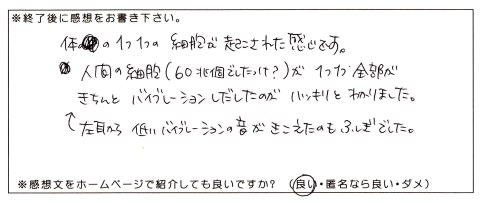 ※終了後に感想をお書き下さい。
体の1つ1つの細胞が起こされた感じです。
人間の細胞(60兆個でしたっけ?)が1つ1つ全部が
きちんとバイブレーションしだしたのがハッキリとわかりました。
↑左耳から低いバイブレーションの音がきこえたのもふしぎでした。
※感想文をホームページで紹介しても良いですか?(良い・匿名なら良い・ダメ)